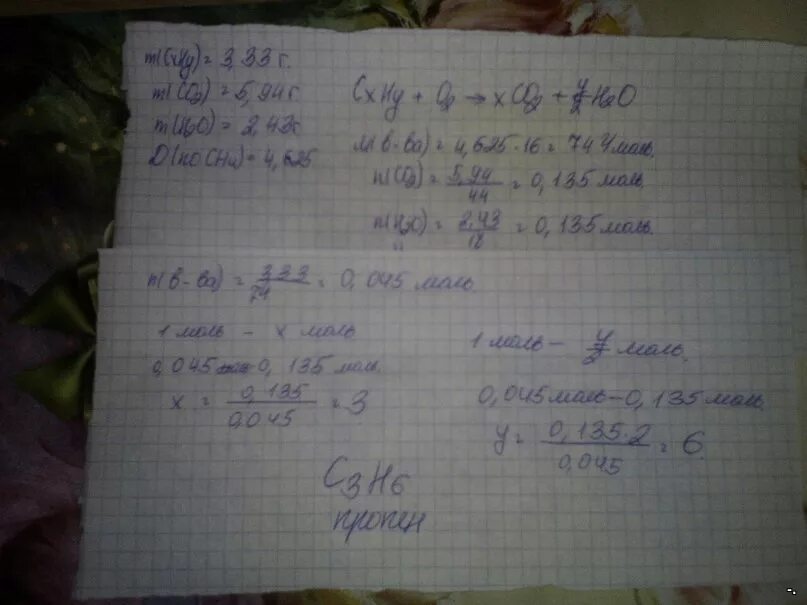 m(CxHy) = 3,33 г.
m(CO2) = 5,94 г.
m(H2O) = 2,43г
D(по CH4) = 4,625
CxHy + O2 → xCO2 + y/2 H2O
M(в-ва) = 4,625 · 16 = 74 г/моль.
n(CO2) = 5,94/44 = 0,135 моль.
n(H2O) = 2,43/18 = 0,135 моль.
n(в-ва) = 3,33/74 = 0,045 моль.
1 моль - x моль
0,045 0,135 моль.
x = 0,135/0,045 = 3
1 моль - y/2 моль.
0,045 моль - 0,135 моль.
y = 0,135·2/0,045 = 6
C3H6
пропен